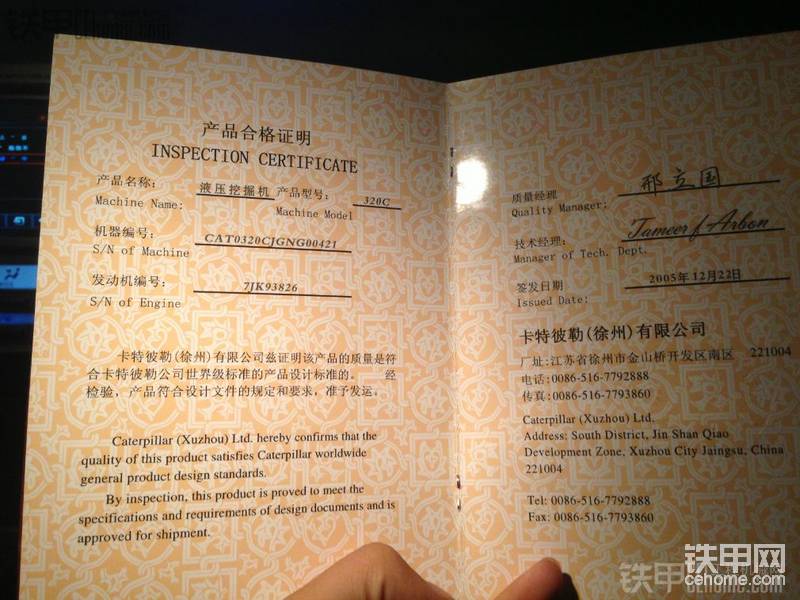 产品合格证明
INSPECTION CERTIFICATE
产品名称： 液压挖掘机 产品型号： 320C
Machine Name: Machine Model
机器编号： CAT0320CJGNG00421
S/N of Machine
发动机编号： 7JK93826
S/N of Engine
卡特彼勒(徐州)有限公司兹证明该产品的质量是符
合卡特彼勒公司世界级标准的产品设计标准的。 经
检验，产品符合设计文件的规定和要求，准予发运。
Caterpillar (Xuzhou) Ltd. hereby confirms that the
quality of this product satisfies Caterpillar worldwide
general product design standards.
By inspection, this product is proved to meet the
specifications and requirements of design documents and is
approved for shipment.
质量经理 邢立国
Quality Manager:
技术经理： Tameer f Arbon
Manager of Tech. Dept.
签发日期 2005年12月22日
Issued Date:
卡特彼勒(徐州)有限公司
厂址:江苏省徐州市金山桥开发区南区 221004
电话:0086-516-7792888
传真:0086-516-7793860
Caterpillar (Xuzhou) Ltd.
Address: South District, Jin Shan Qiao
Development Zone, Xuzhou City Jaingsu, China
221004
Tel: 0086-516-7792888
Fax: 0086-516-7793860
铁甲网
cehome.com